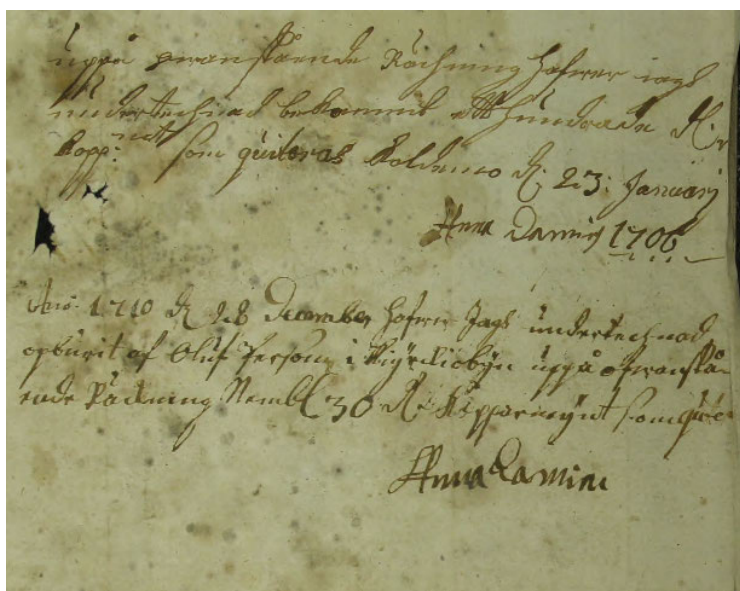 uppå ofwanstående Räckning hafwer iagh
undertechnad bekommit ett hundrade
kopp: mt som quiteras d. 23: Januarij
Anna 1706
Ano: 1710 d 28 December hafwer Jagh undertechnad
opburit af Oluf Persson i uppå ofwanstå-
ende Räckning Nembl 30 d. Kopparmynt som
Anna